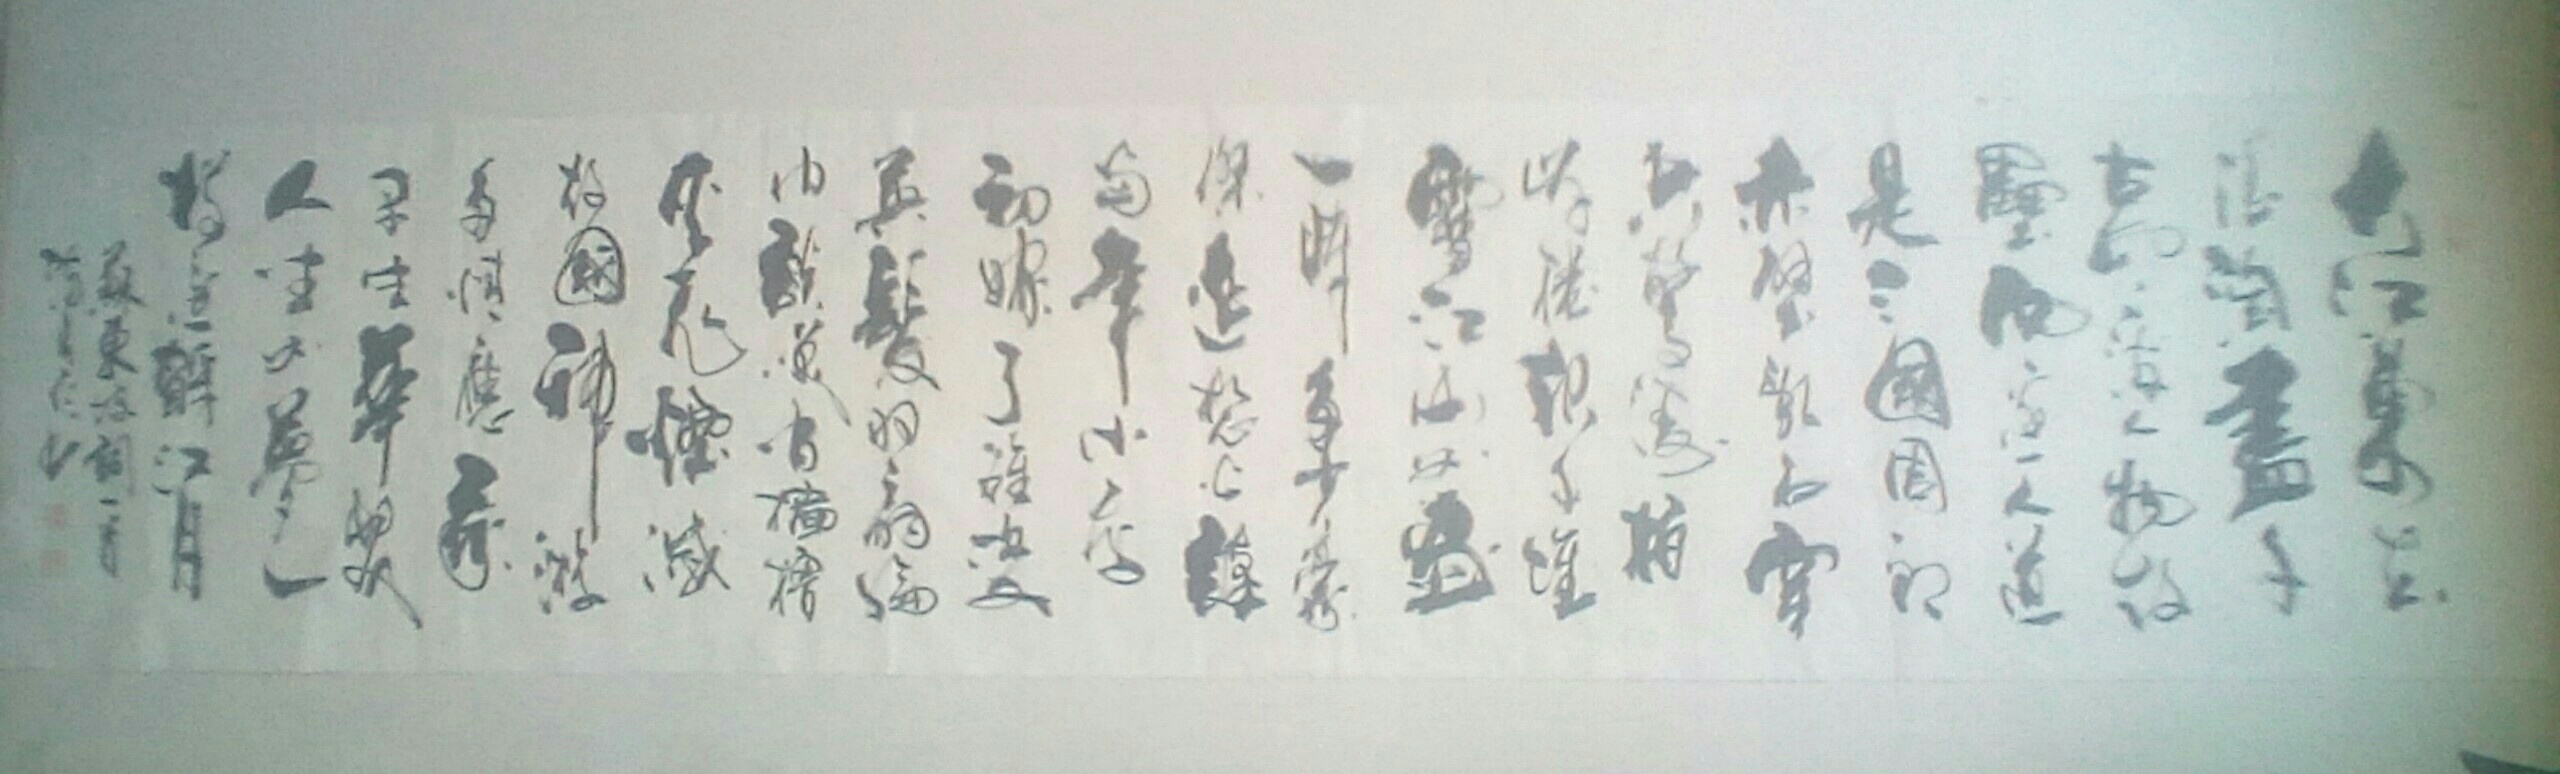 大江東去
浪淘盡千
古風流人物故
壘西邊人道
是三國周郎
赤壁亂石穿
空驚濤拍
岸捲起千堆
雪江山如畫
一時多少豪
傑遙想公謹
當年小喬
初嫁了雄姿
英髮羽扇綸
巾談笑間檣櫓
灰飛煙滅
故國神遊
多情應笑
早生華髮
人生如夢一
樽還酹江月
蘇東坡詞一首